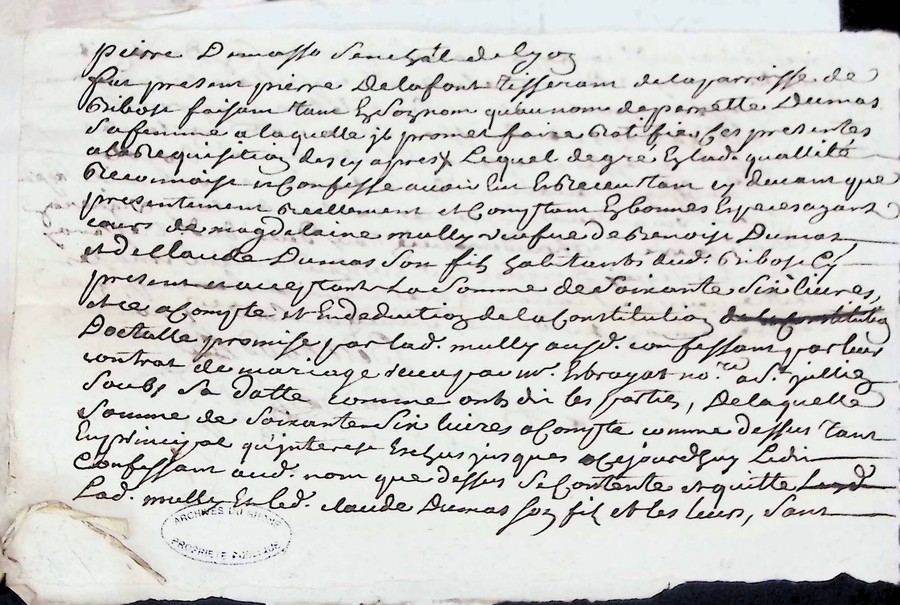 pierre Dumasso Senchãl de lyon
fut present pierre Delafont tisseram de la parroisse de
Ribost faisam tam En Son nom quau nom de pernette Dumas
Sa femme a laquelle jl promet faire Ratifier Ces presentes
a la Requisition des cy apres Lequel de gré En lad. quallité
Reconnoist et Confesse avoir Eut et Receu tam cy devant que
presentement Reellement et Comptam En bonnes Especes ayant
cours de magdelaine mully veufve de Benoist Dumas
et de Claude Dumas Son filz habitants aud. Ribost Cy
present et acceptant La Somme de Soixante Six livres,
et ce a Compte et En deduction de la Constitution de la Constitution
Doctalle promise par lad. mully aud. confessant par leur
contrat de mariage receu par mr. Ebrayat nore. a St. jullien
Soubz Sa datte comme ont dit les parties, De laquelle
Somme de Soixante Six livres a Compte comme dessus tant
En principal qu'interest Escheus jusques a Cejourdhuy Ledit
Confessant aud. nom que dessus Se Contente et quitte Lesd.
Lad. mully Et led. claude Dumas Son filz et les leurs, Sans
ARCHIVES DU RHONE
PROPRIETE PUBLIQUE